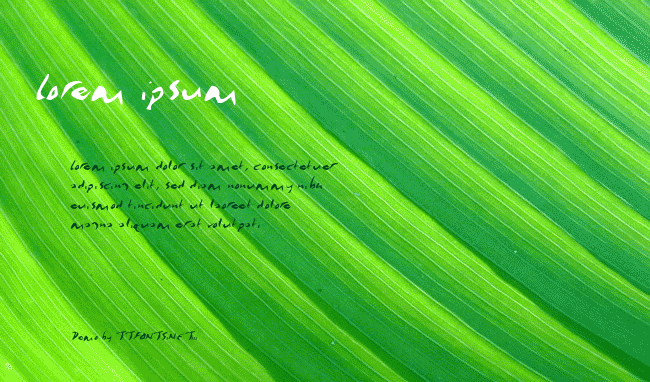 lorem ipsum
lorem ipsum dolor sit amet, consectetuer
adipiscing elit, sed diam nonummy nibh
euismod tincidunt ut laoreet dolore
magna aliquam erat volutpat.
Demo by TTFONTS.NET